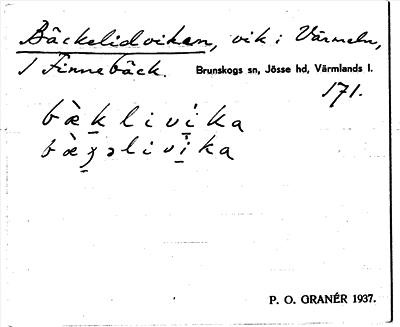 Bäckelidviken, vik i Värmeln,
1 Finnebäck. Brunskogs sn, Jösse hd, Värmlands l.
171.
bæ̀klivika
bæ̀gəlivika
P. O. GRANÉR 1937.